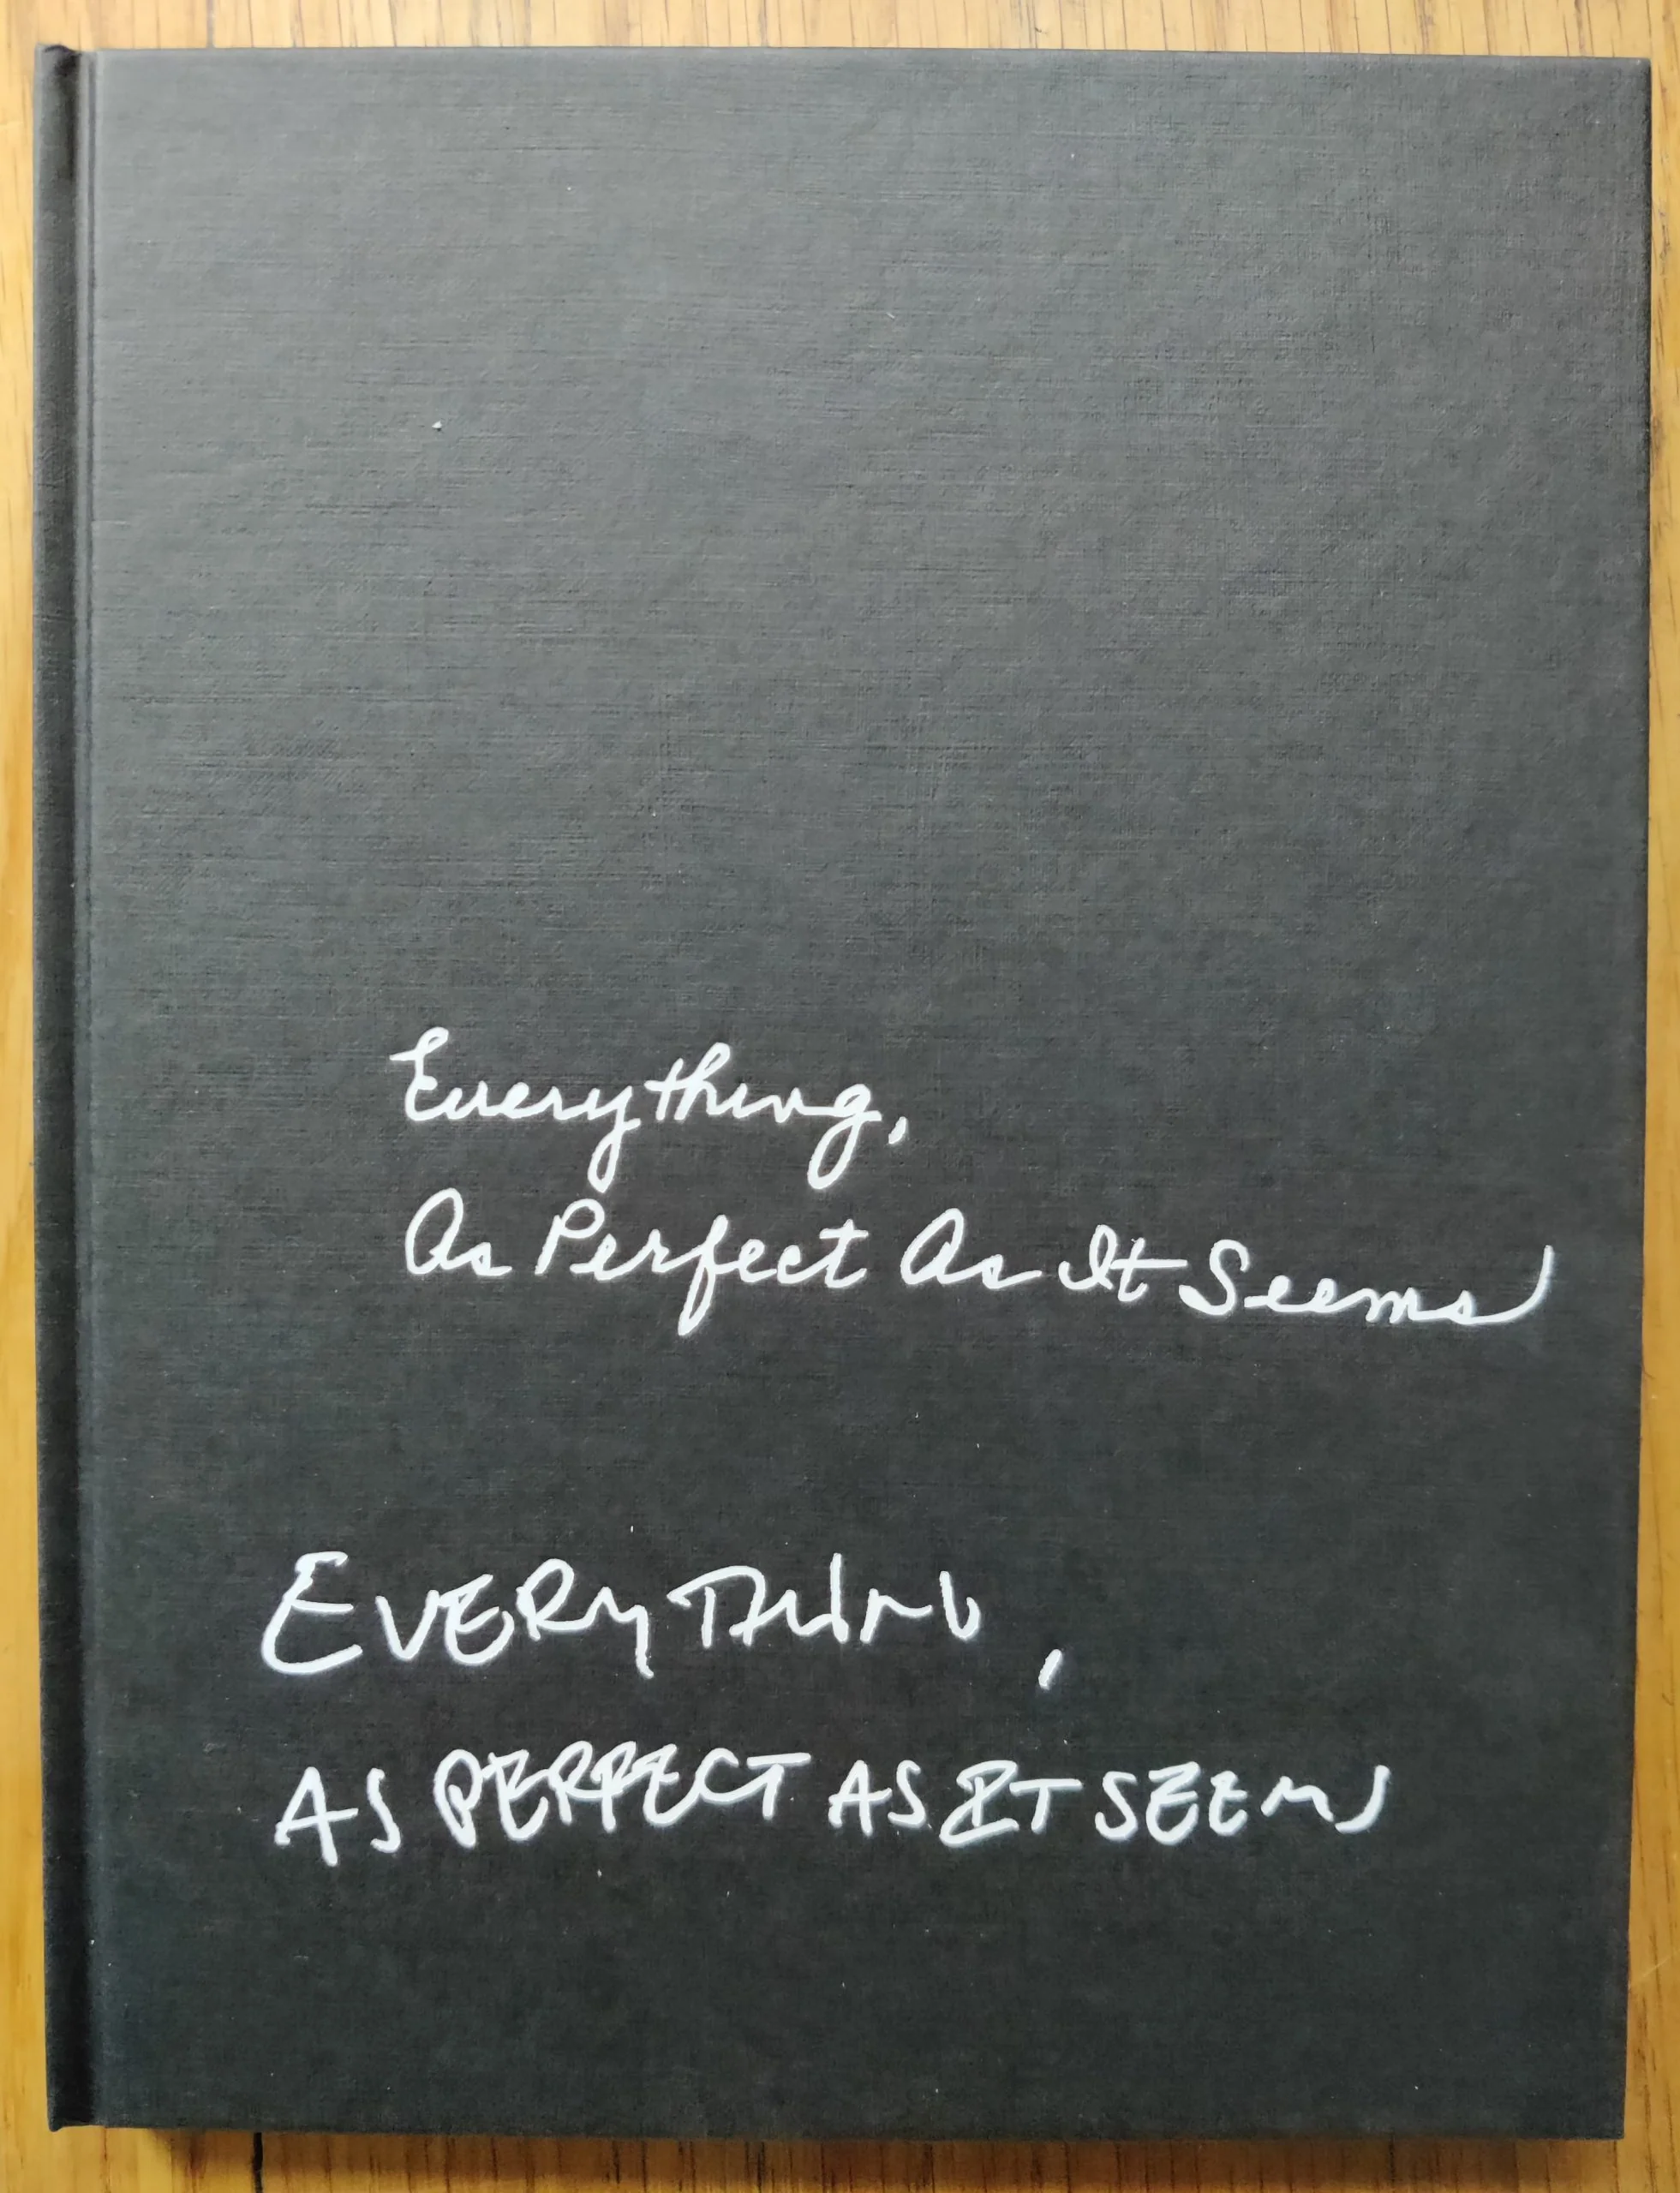 Everything,
As Perfect As It Seems
EVERYTHING,
AS PERFECT AS IT SEEMS